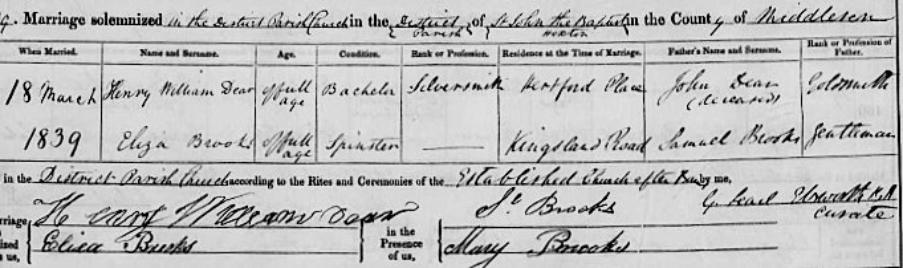 Marriage solemnized in the District Parish Church in the District Parish of St John the Baptist Hoxton in the County of Middlesex
When Married. Name and Surname. Age. Condition. Rank or Profession. Residence at the Time of Marriage. Father's Name and Surname. Rank or Profession of Father.
18 March Henry William Dear of full age Bachelor Silversmith Hertford Place John Dear (deceased) Goldsmith
1839 Eliza Brooks of full age Spinster Kingsland Road Samuel Brooks Gentleman
in the District Parish Church according to the Rites and Ceremonies of the Established Church after Banns by me,
Henry William Dear in the Presence of us, Brooks Curate
Eliza Brooks Mary Brooks